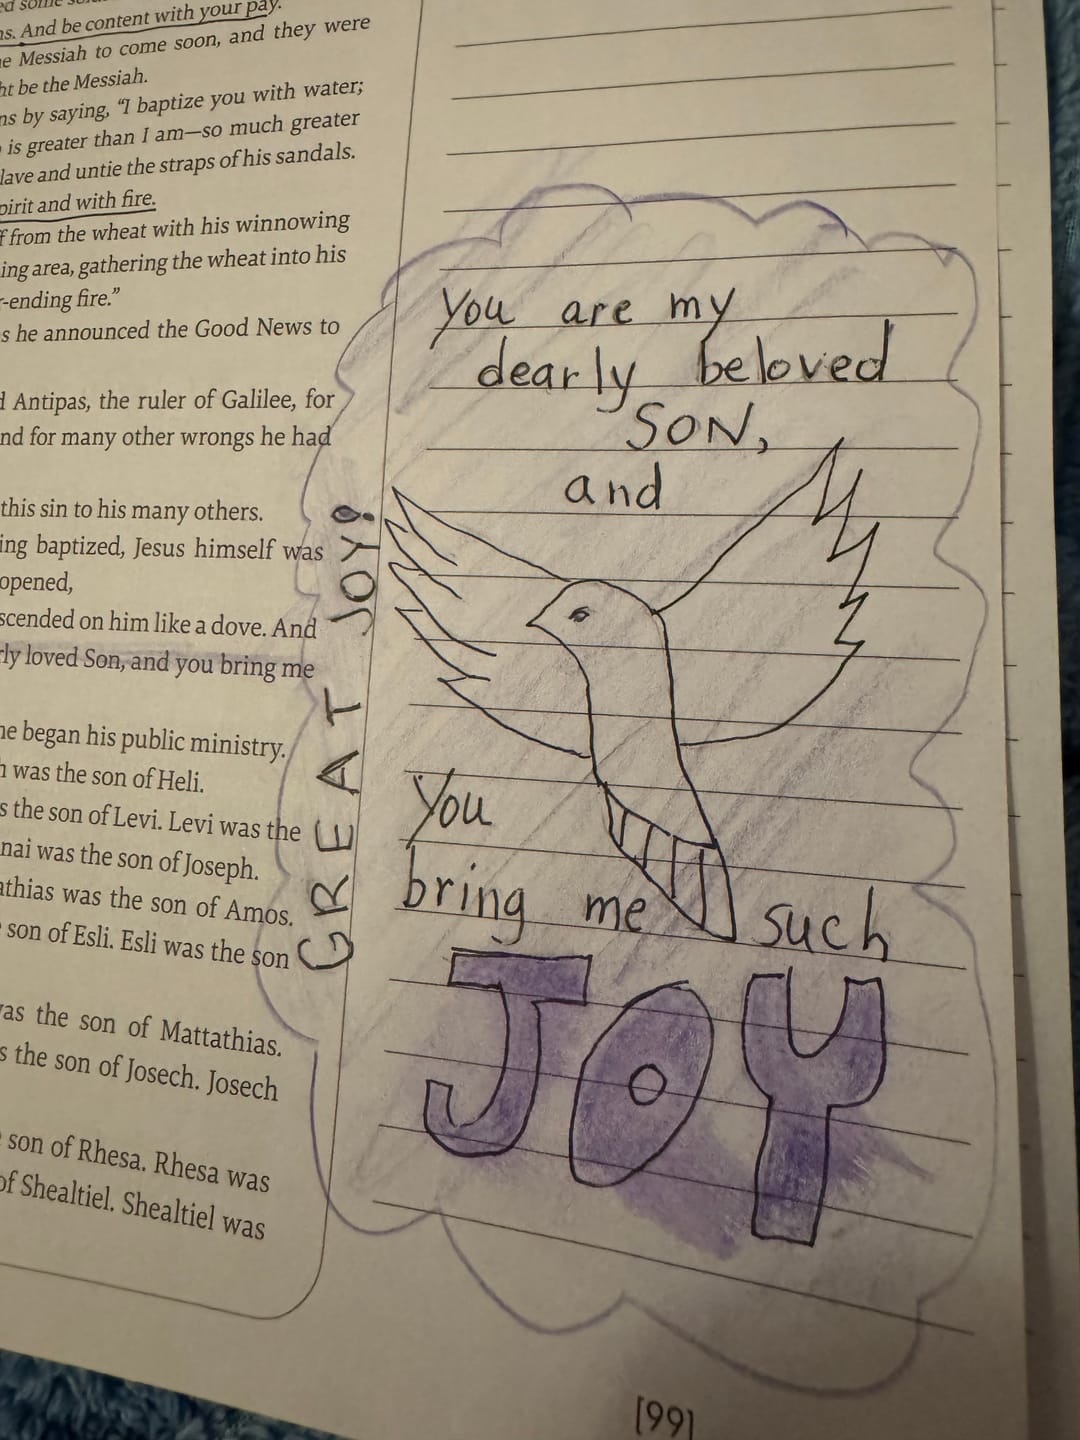 ed some
ns. And be content with your pay.
e Messiah to come soon, and they were
ht be the Messiah.
ns by saying, “I baptize you with water;
is greater than I am—so much greater
lave and untie the straps of his sandals.
pirit and with fire.
f from the wheat with his winnowing
ing area, gathering the wheat into his
r-ending fire.”
s he announced the Good News to
d Antipas, the ruler of Galilee, for
nd for many other wrongs he had
this sin to his many others.
ing baptized, Jesus himself was
opened,
scended on him like a dove. And
rly loved Son, and you bring me
he began his public ministry.
h was the son of Heli.
s the son of Levi. Levi was the
nai was the son of Joseph.
athias was the son of Amos.
son of Esli. Esli was the son
vas the son of Mattathias.
s the son of Josech. Josech
son of Rhesa. Rhesa was
of Shealtiel. Shealtiel was
GREAT JOY!
You are my
dearly beloved
SON,
and
You
bring me such
JOY
[99]